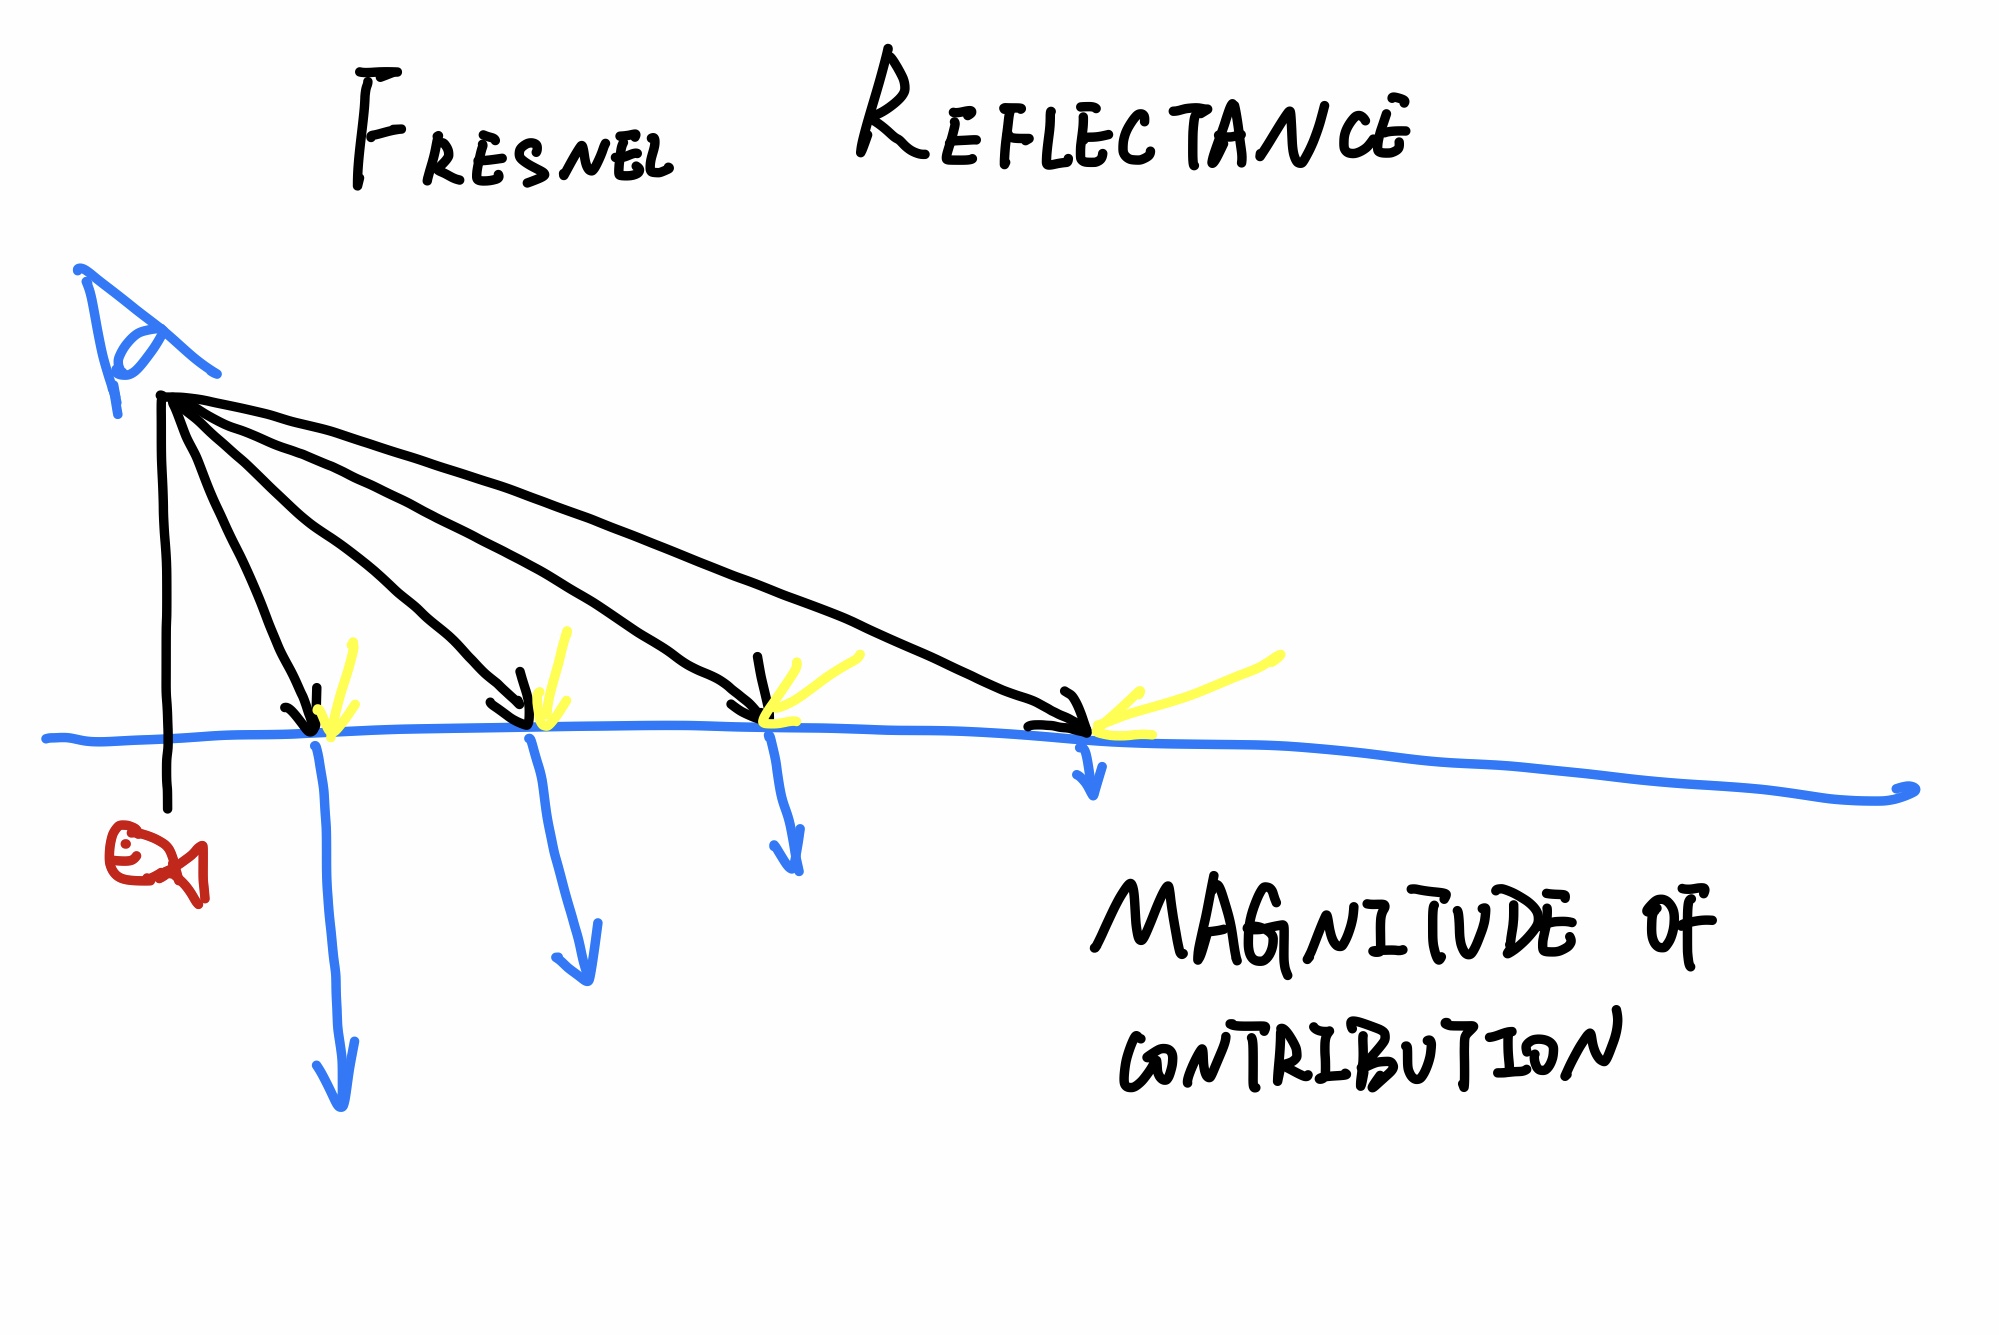 FRESNEL REFLECTANCE
MAGNITUDE OF
CONTRIBUTION